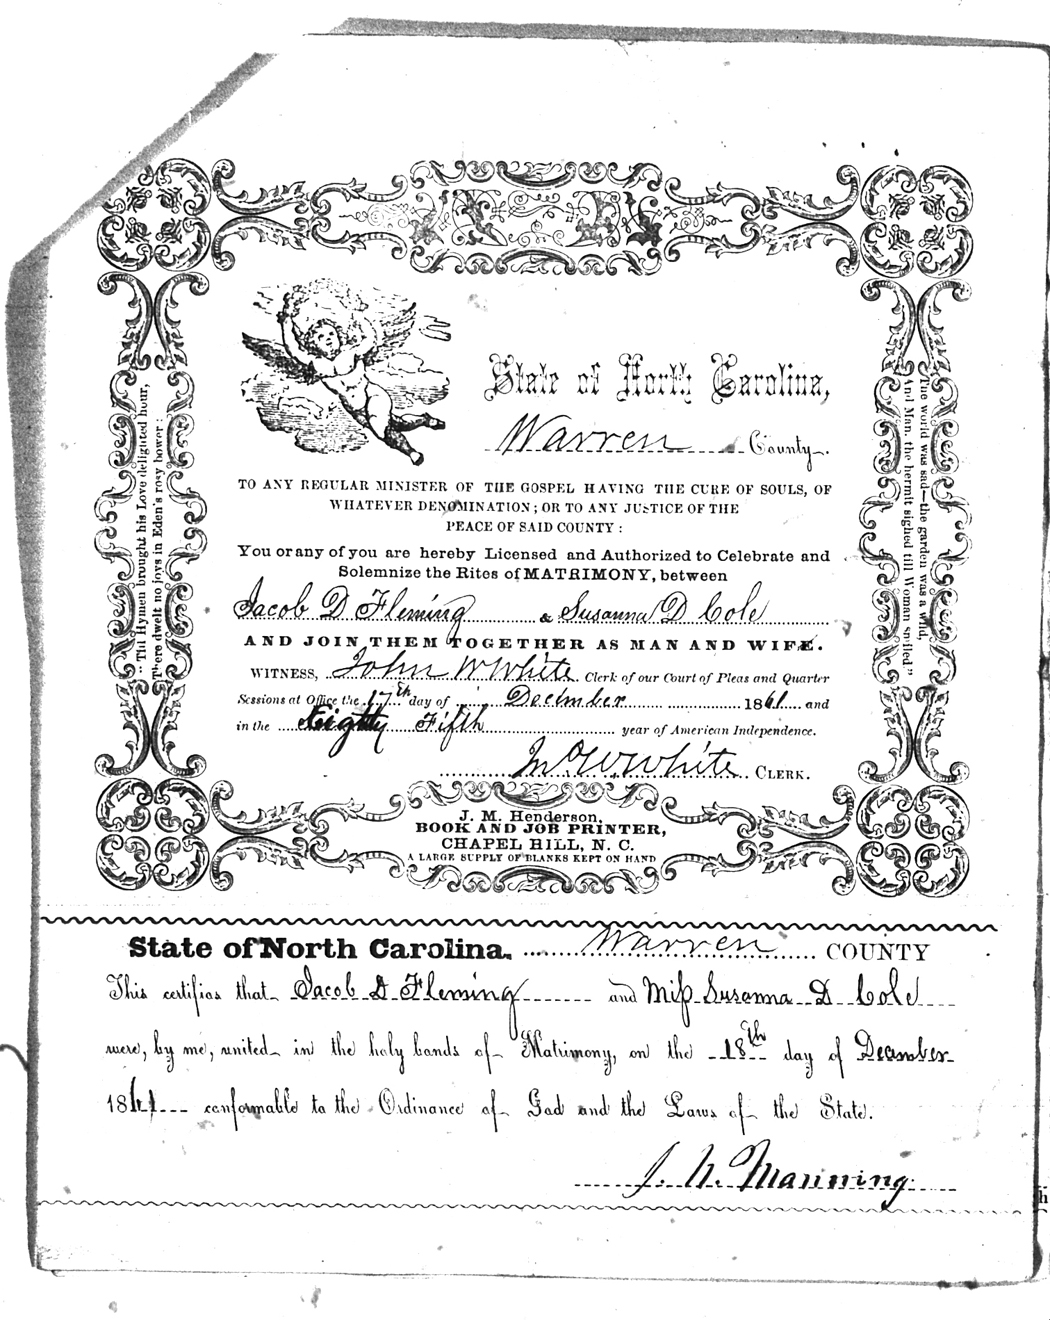 State of North Carolina,
Warren County.
TO ANY REGULAR MINISTER OF THE GOSPEL HAVING THE CURE OF SOULS, OF
WHATEVER DENOMINATION; OR TO ANY JUSTICE OF THE
PEACE OF SAID COUNTY:
You or any of you are hereby Licensed and Authorized to Celebrate and
Solemnize the Rites of MATRIMONY, between
Jacob D Fleming & Susanna D Cole
AND JOIN THEM TOGETHER AS MAN AND WIFE.
WITNESS, John W White. Clerk of our Court of Pleas and Quarter
Sessions at Office the 17th day of December 1861 and
in the Eighty Fifth year of American Independence.
Jno W White. CLERK.
"Till Hymen brought his Love delighted hour,
There dwelt no joys in Eden's rosy bower:
The world was sad—the garden was a wild,
And Man, the hermit sighed till Woman smiled."
J. M. Henderson,
BOOK AND JOB PRINTER,
CHAPEL HILL, N. C.
A LARGE SUPPLY OF BLANKS KEPT ON HAND
State of North Carolina. Warren COUNTY
This certifies that Jacob D Fleming and Miss Susanna D Cole
were, by me, united in the holy bands of Matrimony, on the 18th day of December
1861 conformable to the Ordinance of God and the Laws of the State.
J. N. Manning